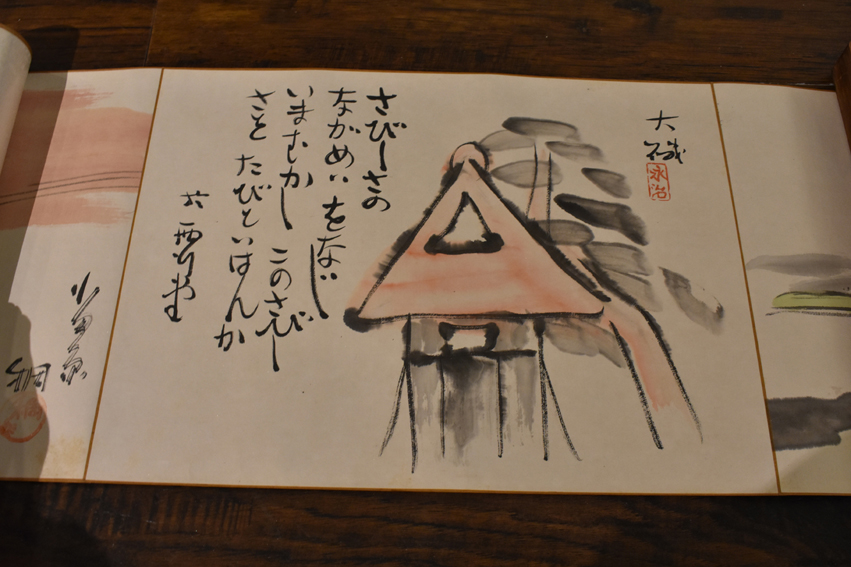 大磯
永治
さびしさの
ながめハをなじ
いまむかし このさびし
さを たびといはんか
西行堂
小田原